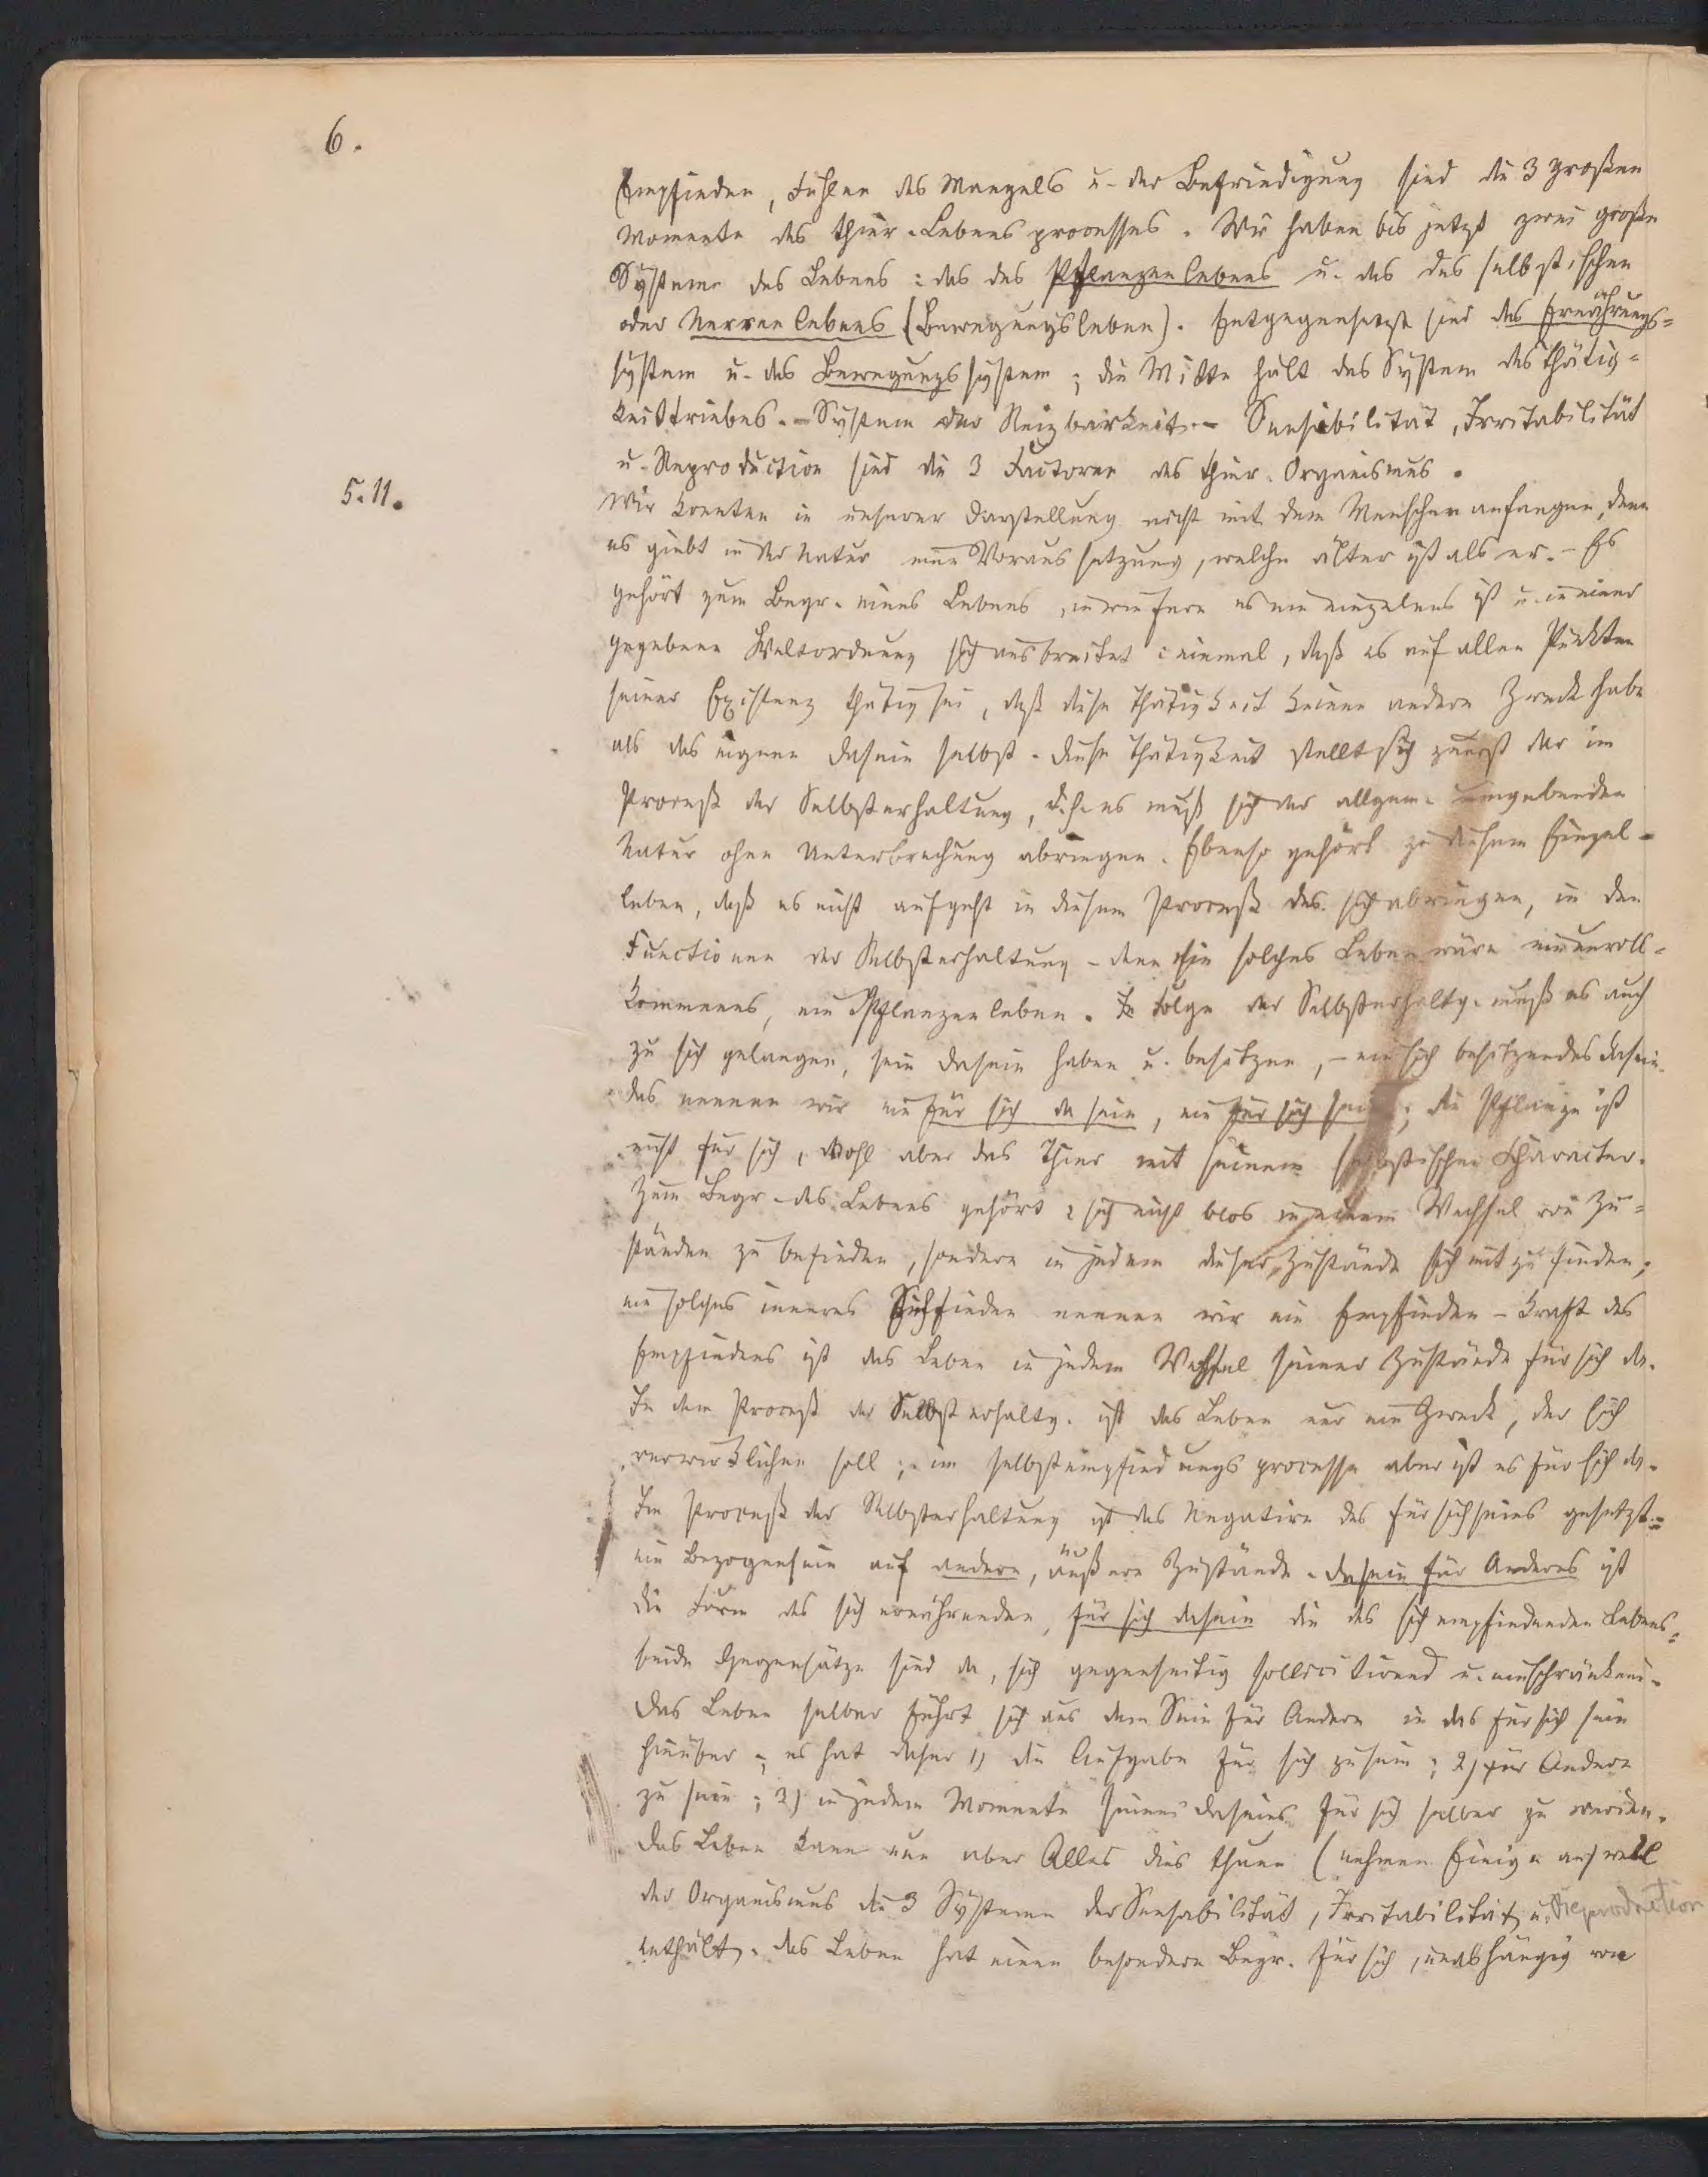 6.
Empfinden, Fühlen des Mangels u. der Befriedigung sind die 3 großen
Momente des thier. Lebensprocesses. Wir haben bis jetzt zwei große
Systeme des Lebens: das des Pflanzenlebens u. das des selbstischen
oder Nervenlebens (Bewegungsleben). Entgegensetzt sind das Ernährungs-
system u. das Bewegungssystem; die Mitte hält das System des Thätig-
keitstriebes. – System der Reizbarkeit. – Sensibilität, Irritabilität
u. Reproduction sind die 3 Factoren des thier. Organismus.
5.11.
Wir konnten in unserer Darstellung nicht mit dem Menschen anfangen, denn
es giebt in der Natur eine Voraussetzung, welche älter ist als er. – Es
gehört zum Begr. eines Lebens, inwiefern es ein einzelnes ist u. in einer
gegebenen Weltordnung sich ausbreitet: einmal, daß es auf allen Punkten
seiner Existenz thätig sei, daß diese Thätigkeit keinen andern Zweck habe
als das eigene Dasein selbst. Diese Thätigkeit stellt sich zuerst dar im
Proceß der Selbsterhaltung, d.h. es muß sich der allgem. umgebenden
Natur ohne Unterbrechung abringen. Ebenso gehört zu diesem Einzel-
leben, daß es nicht aufgeht in diesem Proceß des sich abringen, in den
Functionen der Selbsterhaltung – denn ein solches Leben wäre ein unvoll-
kommenes, ein Pflanzenleben. In Folge der Selbsterhaltg. muß es auch
zu sich gelangen, sein Dasein haben u. besitzen, – ein sich besitzendes Dasein.
das nennen wir ein für sich da sein, ein für sich sein; die Pflanze ist
nicht für sich, wohl aber das Thier mit seinem selbstischen Character.
Zum Begr. des Lebens gehört: sich nicht blos in einem Wechsel von Zu-
ständen zu befinden, sondern in jedem dieser Zustände sich mit zu finden;
ein solches inneres Sichfinden nennen wir ein Empfinden – Kraft des
Empfindens ist das Leben in jedem Wechsel seiner Zustände für sich da.
In dem Proceß der Selbsterhaltg. ist das Leben nur ein Zweck, der sich
verwirklichen soll; im Selbstempfindungsprocesse aber ist es für sich da.
Im Proceß der Selbsterhaltung ist das Negative des Fürsichseins gesetzt:
ein Bezogensein auf andere, äußere Zustände. Dasein für Anderes ist
die Form des sich ernährenden, für sich dasein die des sich empfindenden Lebens;
beide Gegensätze sind da, sich gegenseitig sollicitirend u. einschränkend.
Das Leben selber führt sich aus dem Sein für Andere in das für sich sein
hinüber; es hat daher 1) die Aufgabe für sich zu sein; 2) für Andere
zu sein; 3) in jedem Momente seines Daseins für sich selber zu werden.
Das Leben kann nun aber Alles dies thuen (nehmen Einige an) weil
der Organismus die 3 Systeme der Sensabilität, Irritabilität u. Reproduction
enthält. Das Leben hat einen besondern Begr. für sich, unabhängig von